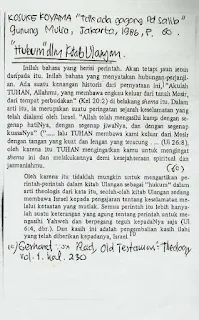 KOSUKE KOYAMA "Tidak ada gagang Pd salib"
Gunung Mulia, Jakarta, 1986, P, 60.
"Hukum dlm Kitab Ulangan.
Inilah bahasa yang berisi perintah. Akan tetapi jauh sesu
daripada itu. Inilah bahasa yang menyatakan hubungan-perjanji-
an. Ada suatu konangan historis dari pernyataan ini, "Akulah
TUHAN, Allahmu, yang membawa engkau keluar dari tanah Mesir,
dari tempat perbudakan" (Kel 20:2) di belakang shema itu. Dalam
arti itu, ia merupakan suatu peringatan sejarah keselamatan yang
telah dialami oleh Israel. "Allah telah mengasihi kamu dengan se-
genap hatiNya, dengan segenap jiwaNya, dan dengan segenap
kuasaNya" ("..... lalu TUHAN membawa kami keluar dari Mesir
dengan tangan yang kuat dan lengan yang teracung ..." (Ul 26:8),
oleh karena itu TUHAN mengingatkan kamu untuk mengingat
shema ini dan melakukannya demi kesejahteraan spiritual dan
jasmaniahmu.
(60)
Oleh karena itu tidaklah mungkin untuk mengartikan pe-
rintah-perintah dalam kitab Ulangan sebagai "hukum" dalam
arti theologis dari kata itu, seolah-olah kitab Ulangan sedang
membawa Israel kepada pengajaran tentang keselamatan me-
lalui ketaatan yang mutlak. Semua perintah itu lebih hanya-
lah suatu keterangan yang agung tentang perintah untuk me-
ngasihi Yahweh dan berpegang teguh kepadaNya saja (Ul
6:4, dbr.). Dan kasih ini adalah pengembalian kasih ilahi
yang telah diberikan kepadanya, Israel.
Gerhard von Rad, Old Testament Theology
vol. 1. hal. 230